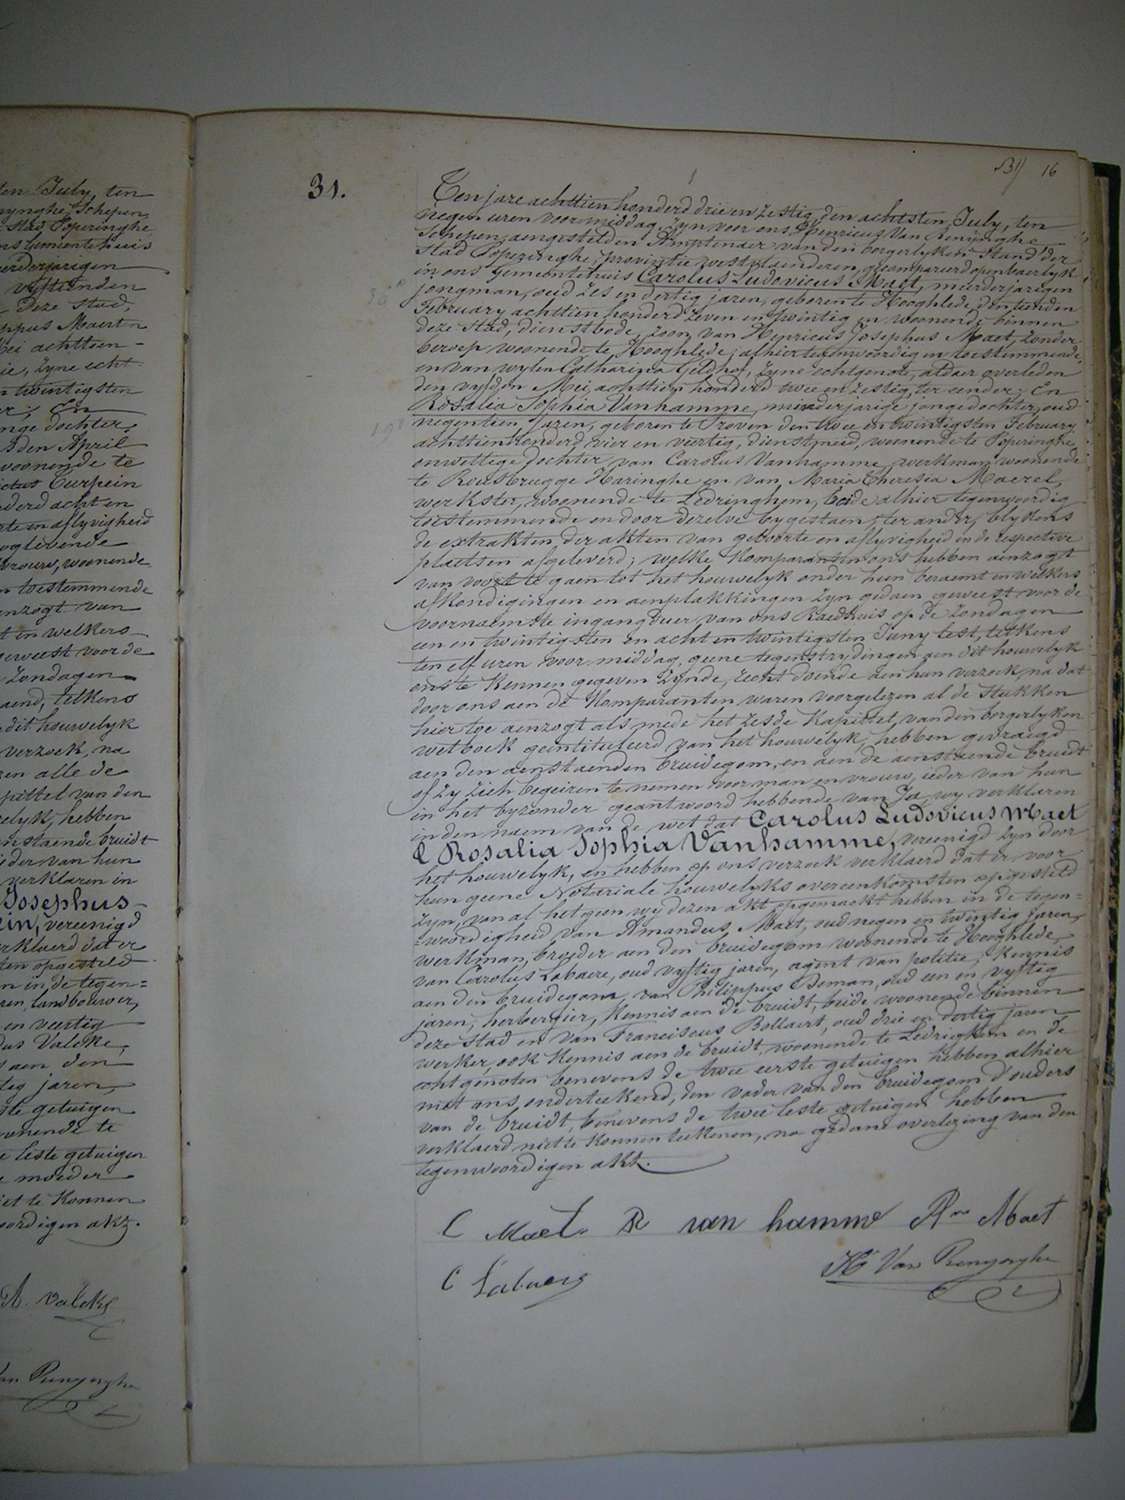 ten July, ten
Schepen
Stad Poperinghe
ons Gemeentehuis
meerderjarigen
deze Stad,
Mei achttien-
zyne echt
twintigsten
En
dochter,
den April
woonende te
Curpein
acht en
aflyvigheid
vrouw, woonende
toestemmende
aenzogt van
en welkers
geweest voor de
Zondagen
telkens
dit houwelyk
verzoek, na
alle de
Kapittel van den
hebben
aenstaende bruidt
ieder van hun
verklaren in
Josephus
vereenigd
verklaerd dat er
opgesteld
in de tegen=
landbouwer,
en veertig
Valcke,
aen den
jaren,
getuigen
woonende te
leste getuigen
moeder
niet te konnen
tegenwoordigen akt.
A. Valcke
Van Renynghe
16
31.
Ten jare achttien honderd drie en zestig, den achtsten July, ten
negen uren voormiddag, zyn voor ons, Henricus Van Renynghe
Schepen, aengestelden Amptenaer van den borgerlyken Stand der
Stad Poperinghe, provintie westvlaenderen, gecompareerd openbaerlyk
in ons Gemeentehuis Carolus Ludovicus Maet, meerderjarigen
jongman, oud zes en dertig jaren, geboren te Hooghlede, den tienden
February achttien honderd zeven en twintig en woonende binnen
deze Stad, dienstbode, zoon van Henricus Josephus Maet, zonder
beroep, woonende te Hooghlede, alhier tegenwoordig en toestemmende,
en van wylen Catharina Geldhof, zyne echtgenote, aldaer overleden
den vyfden Mei achttien honderd twee en zestig, ter eender; En
Rosalia Sophia Vanhamme, minderjarige jongedochter, oud
negentien jaren, geboren te Proven den twee en twintigsten February
achttien honderd vier en veertig, dienstmeid, woonende te Poperinghe,
onwettige dochter van Carolus Vanhamme, werkman, woonende
te Rousbrugge Haringhe en van Maria Theresia Maerel,
werkster, woonende te Ledringhem, beide alhier tegenwoordig
toestemmende en door dezelve bygestaen, ter ander, blykens
de extrakten der akten van geboorte en aflyvigheid in de respective
plaetsen afgeleverd; welke Komparanten ons hebben aenzogt
van voort te gaen tot het houwelyk onder hun beraemt en welkers
afkondigingen en aenplakkingen zyn gedaen geweest voor de
voornaemste ingangdeur van ons Raedhuis op de zondagen
een en twintigsten en acht en twintigsten Juny lest, telkens
ten elf uren voormiddag, geene tegenstrydingen aen dit houwelyk
ons te kennen gegeven zynde, recht doende aen hun verzoek, na dat
door ons aen de Komparanten waren voorgelezen al de stukken
hier toe aenzogt als mede het zesde Kapittel van den borgerlyken
wetboek geintituleerd van het houwelyk, hebben gevraegd
aen den aenstaenden bruidegom en aen de aenstaende bruidt
of zy zich begeiren te nemen voor man en vrouw, ieder van hun
in het byzonder geantwoord hebbende van Ja, wy verklaren
in den naem van de wet dat Carolus Ludovicus Maet
& Rosalia Sophia Vanhamme, vereenigd zyn door
het houwelyk, en hebben op ons verzoek verklaerd dat er voor
hun geene Notariale houwelyks overeenkomsten opgesteld
zyn, van al het geen wy dezen akt opgemaekt hebben in de tegen=
woordigheid van Amandus Maet, oud negen en twintig jaren,
werkman, broeder aen den bruidegom woonende te Hooghlede,
van Carolus Labaere, oud vyftig jaren, agent van politie, kennis
aen den bruidegom van Philippus Deman, oud een en vyftig
jaren, herbergier, kennis aen de bruidt, beide woonende binnen
deze stad en van Franciscus Bollaert, oud drie en dertig jaren,
werker, ook kennis aen de bruidt, woonende te Ledringhem en de
echtgenoten benevens de twee eerste getuigen hebben alhier
met ons onderteekend, den vader van den bruidegom d'ouders
van de bruidt, benevens de twee leste getuigen hebben
verklaerd niet te konnen teekenen, na gedane overlezing van den
tegenwoordigen akt.
C Maet R van hamme Am Maet
C Labaere
H Van Renynghe